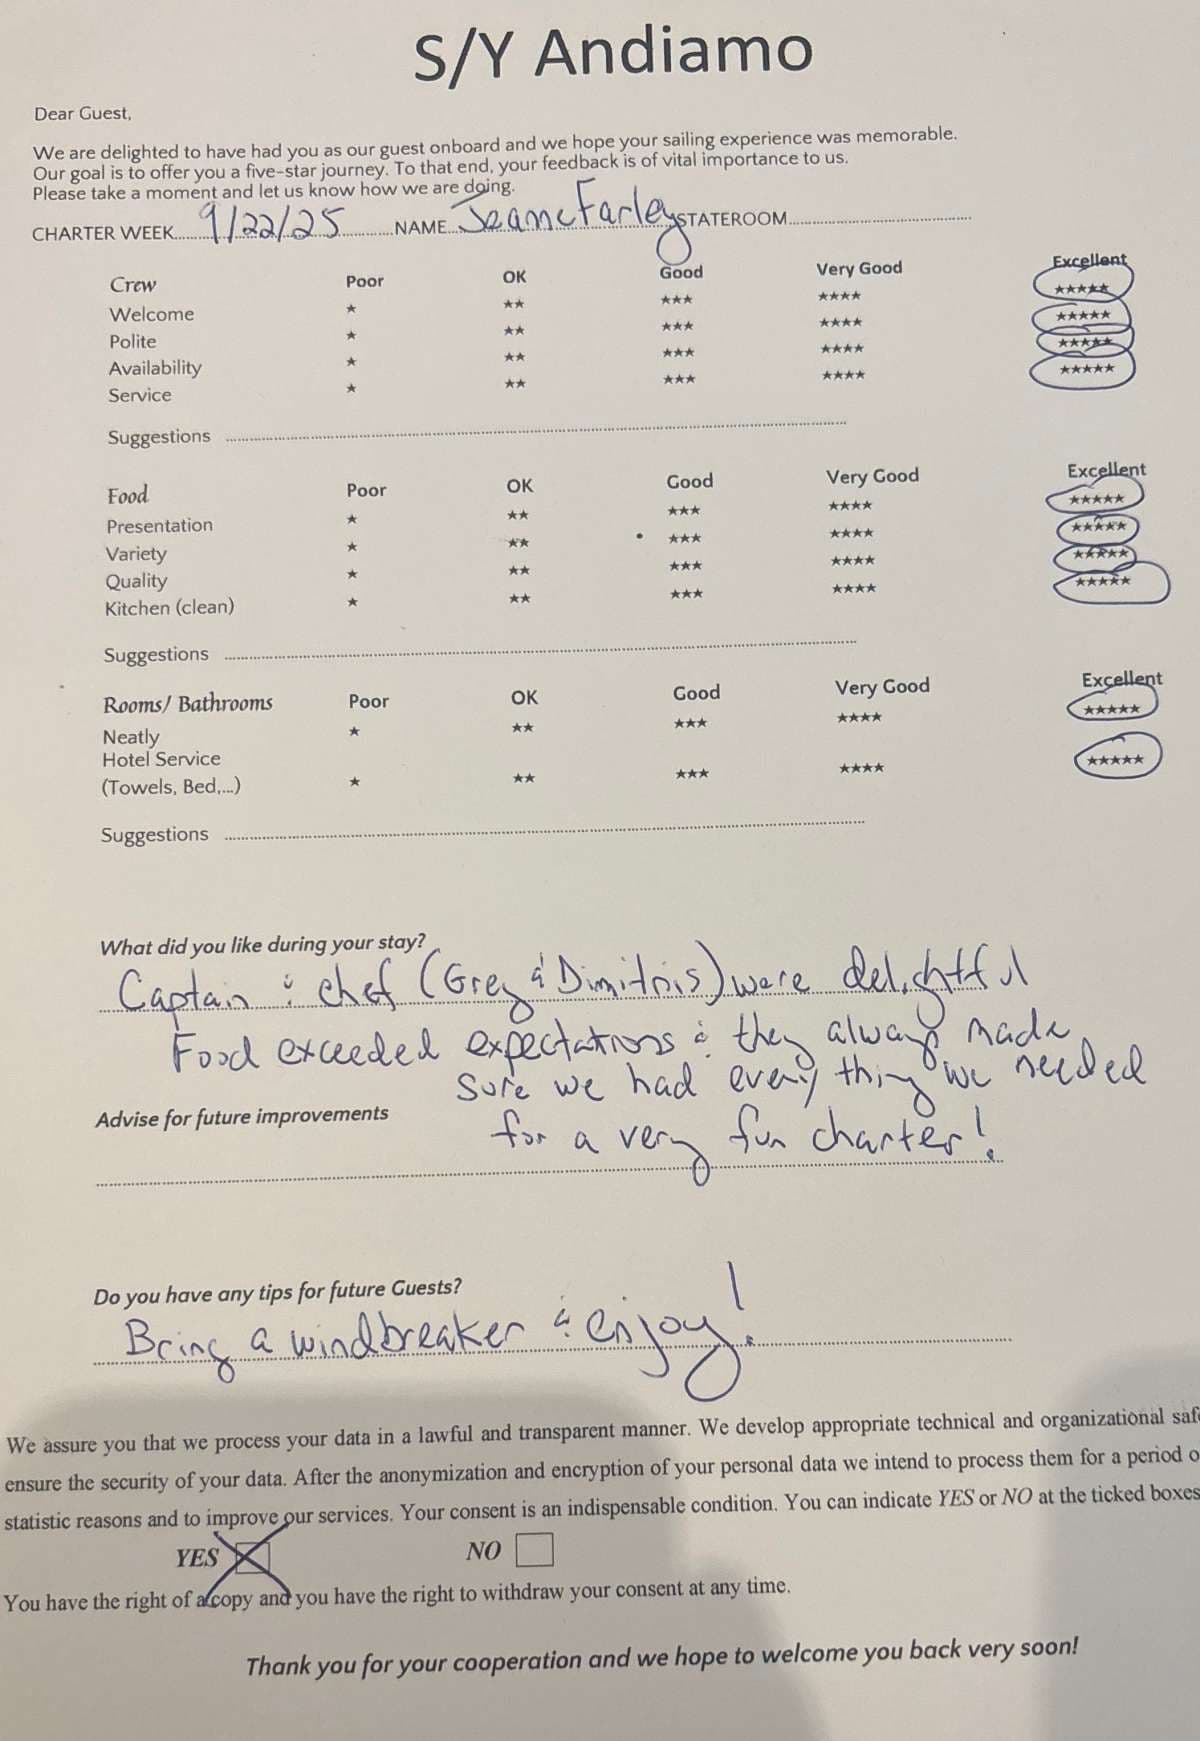 S/Y Andiamo
Dear Guest,
We are delighted to have had you as our guest onboard and we hope your sailing experience was memorable.
Our goal is to offer you a five-star journey. To that end, your feedback is of vital importance to us.
Please take a moment and let us know how we are doing.
CHARTER WEEK 9/22/25 NAME Jeanne Farley STATEROOM
Crew Poor OK Good Very Good Excellent
Welcome ★ ★★ ★★★ ★★★★ ★★★★★
Polite ★ ★★ ★★★ ★★★★ ★★★★★
Availability ★ ★★ ★★★ ★★★★ ★★★★★
Service ★ ★★ ★★★ ★★★★ ★★★★★
Suggestions
Food Poor OK Good Very Good Excellent
Presentation ★ ★★ ★★★ ★★★★ ★★★★★
Variety ★ ★★ ★★★ ★★★★ ★★★★★
Quality ★ ★★ ★★★ ★★★★ ★★★★★
Kitchen (clean) ★ ★★ ★★★ ★★★★ ★★★★★
Suggestions
Rooms/ Bathrooms Poor OK Good Very Good Excellent
Neatly ★ ★★ ★★★ ★★★★ ★★★★★
Hotel Service
(Towels, Bed,...) ★ ★★ ★★★ ★★★★ ★★★★★
Suggestions
What did you like during your stay?
Captain & chef (Greg & Dimitris) were delightful
Food exceeded expectations & they always made
sure we had everything we needed
for a very fun charter!
Advise for future improvements
Do you have any tips for future Guests?
Bring a windbreaker & enjoy!
We assure you that we process your data in a lawful and transparent manner. We develop appropriate technical and organizational
ensure the security of your data. After the anonymization and encryption of your personal data we intend to process them for a period
statistic reasons and to improve our services. Your consent is an indispensable condition. You can indicate YES or NO at the ticked boxes
YES NO
You have the right of a copy and you have the right to withdraw your consent at any time.
Thank you for your cooperation and we hope to welcome you back very soon!